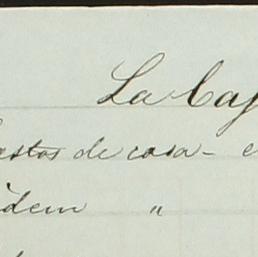 La Caj
astos de casa - e
idem "